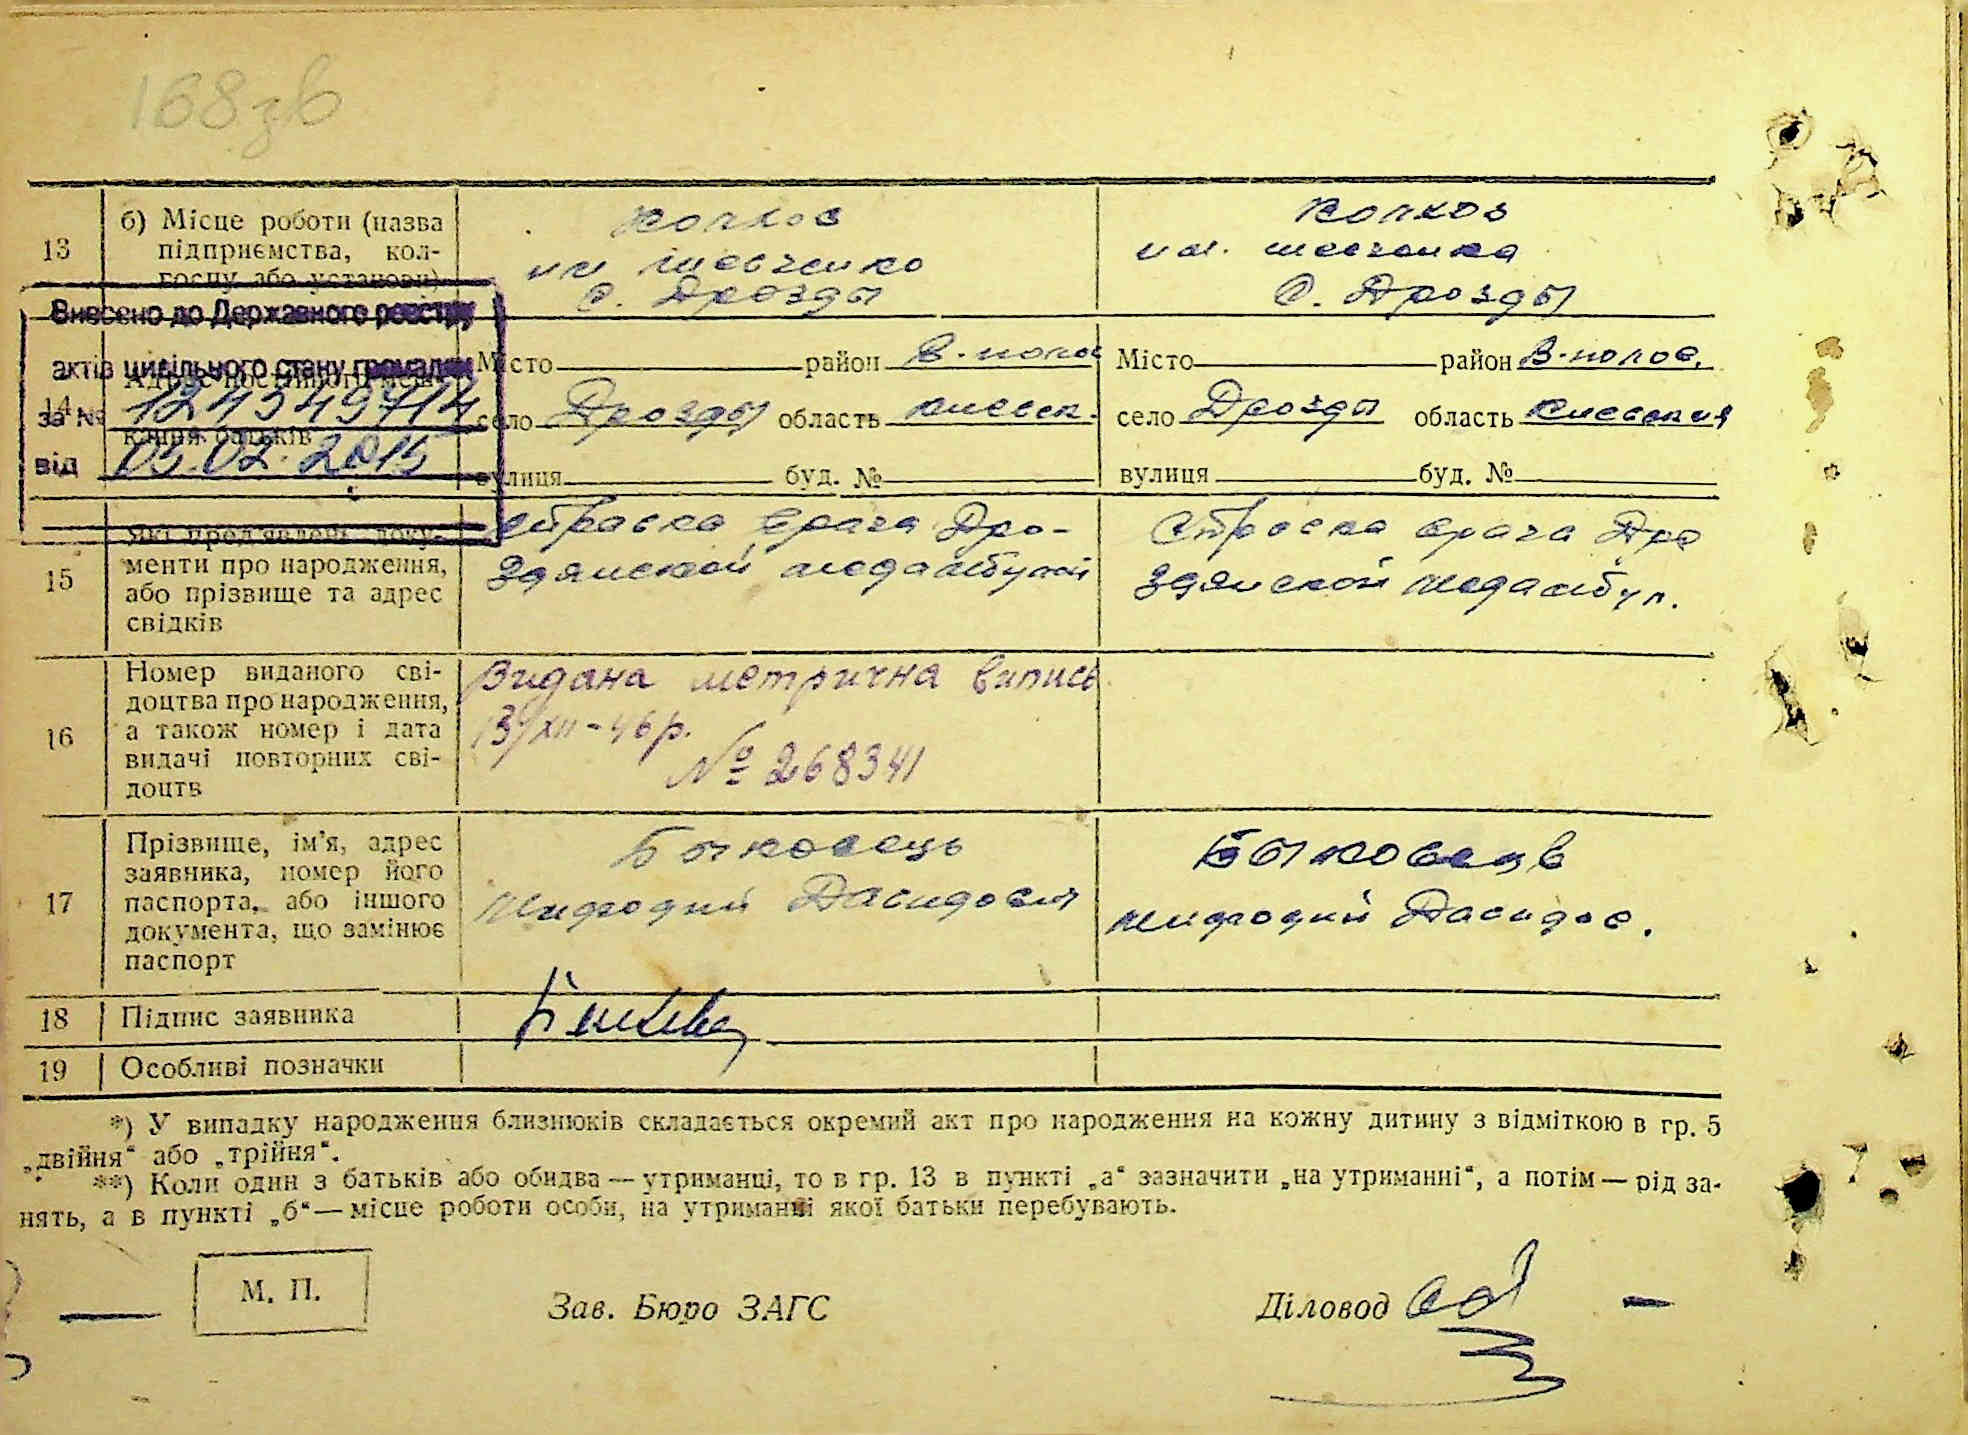 168зв
13
б) Місце роботи (назва
підприємства, кол-
госпу або установи)
Колхоз
им Шевченко
с. Дрозды
Колхоз
им. Шевченка
с. Дрозды
Внесено до Державного реєстру
актів цивільного стану громадян
за №
від 05.02.2015
14
кання батьків
Місто район В-полов
село Дрозды область Киевск.
вулиця буд. №
Місто район В-полов.
село Дрозды область Киевския
вулиця буд. №
15
Які пред'явлені доку-
менти про народження,
або прізвище та адрес
свідків
Справка врача Дро-
здянской
Справка врача Дро
здянской медамбул.
16
Номер виданого сві-
доцтва про народження,
а також номер і дата
видачі повторних сві-
доцтв
Видана метрична випись
13/XII-46р.
№ 268341
17
Прізвище, ім'я, адрес
заявника, номер його
паспорта, або іншого
документа, що замінює
паспорт
Быковець
Мифодий Давидович
Быковець
Мифодий Давидов.
18
Підпис заявника
19
Особливі позначки
*) У випадку народження близнюків складається окремий акт про народження на кожну дитину з відміткою в гр. 5
„двійня“ або „трійня“.
**) Коли один з батьків або обидва — утриманці, то в гр. 13 в пункті „а“ зазначити „на утриманні“, а потім — рід за-
нять, а в пункті „б“ — місце роботи особи, на утриманні якої батьки перебувають.
М. П.
Зав. Бюро ЗАГС
Діловод